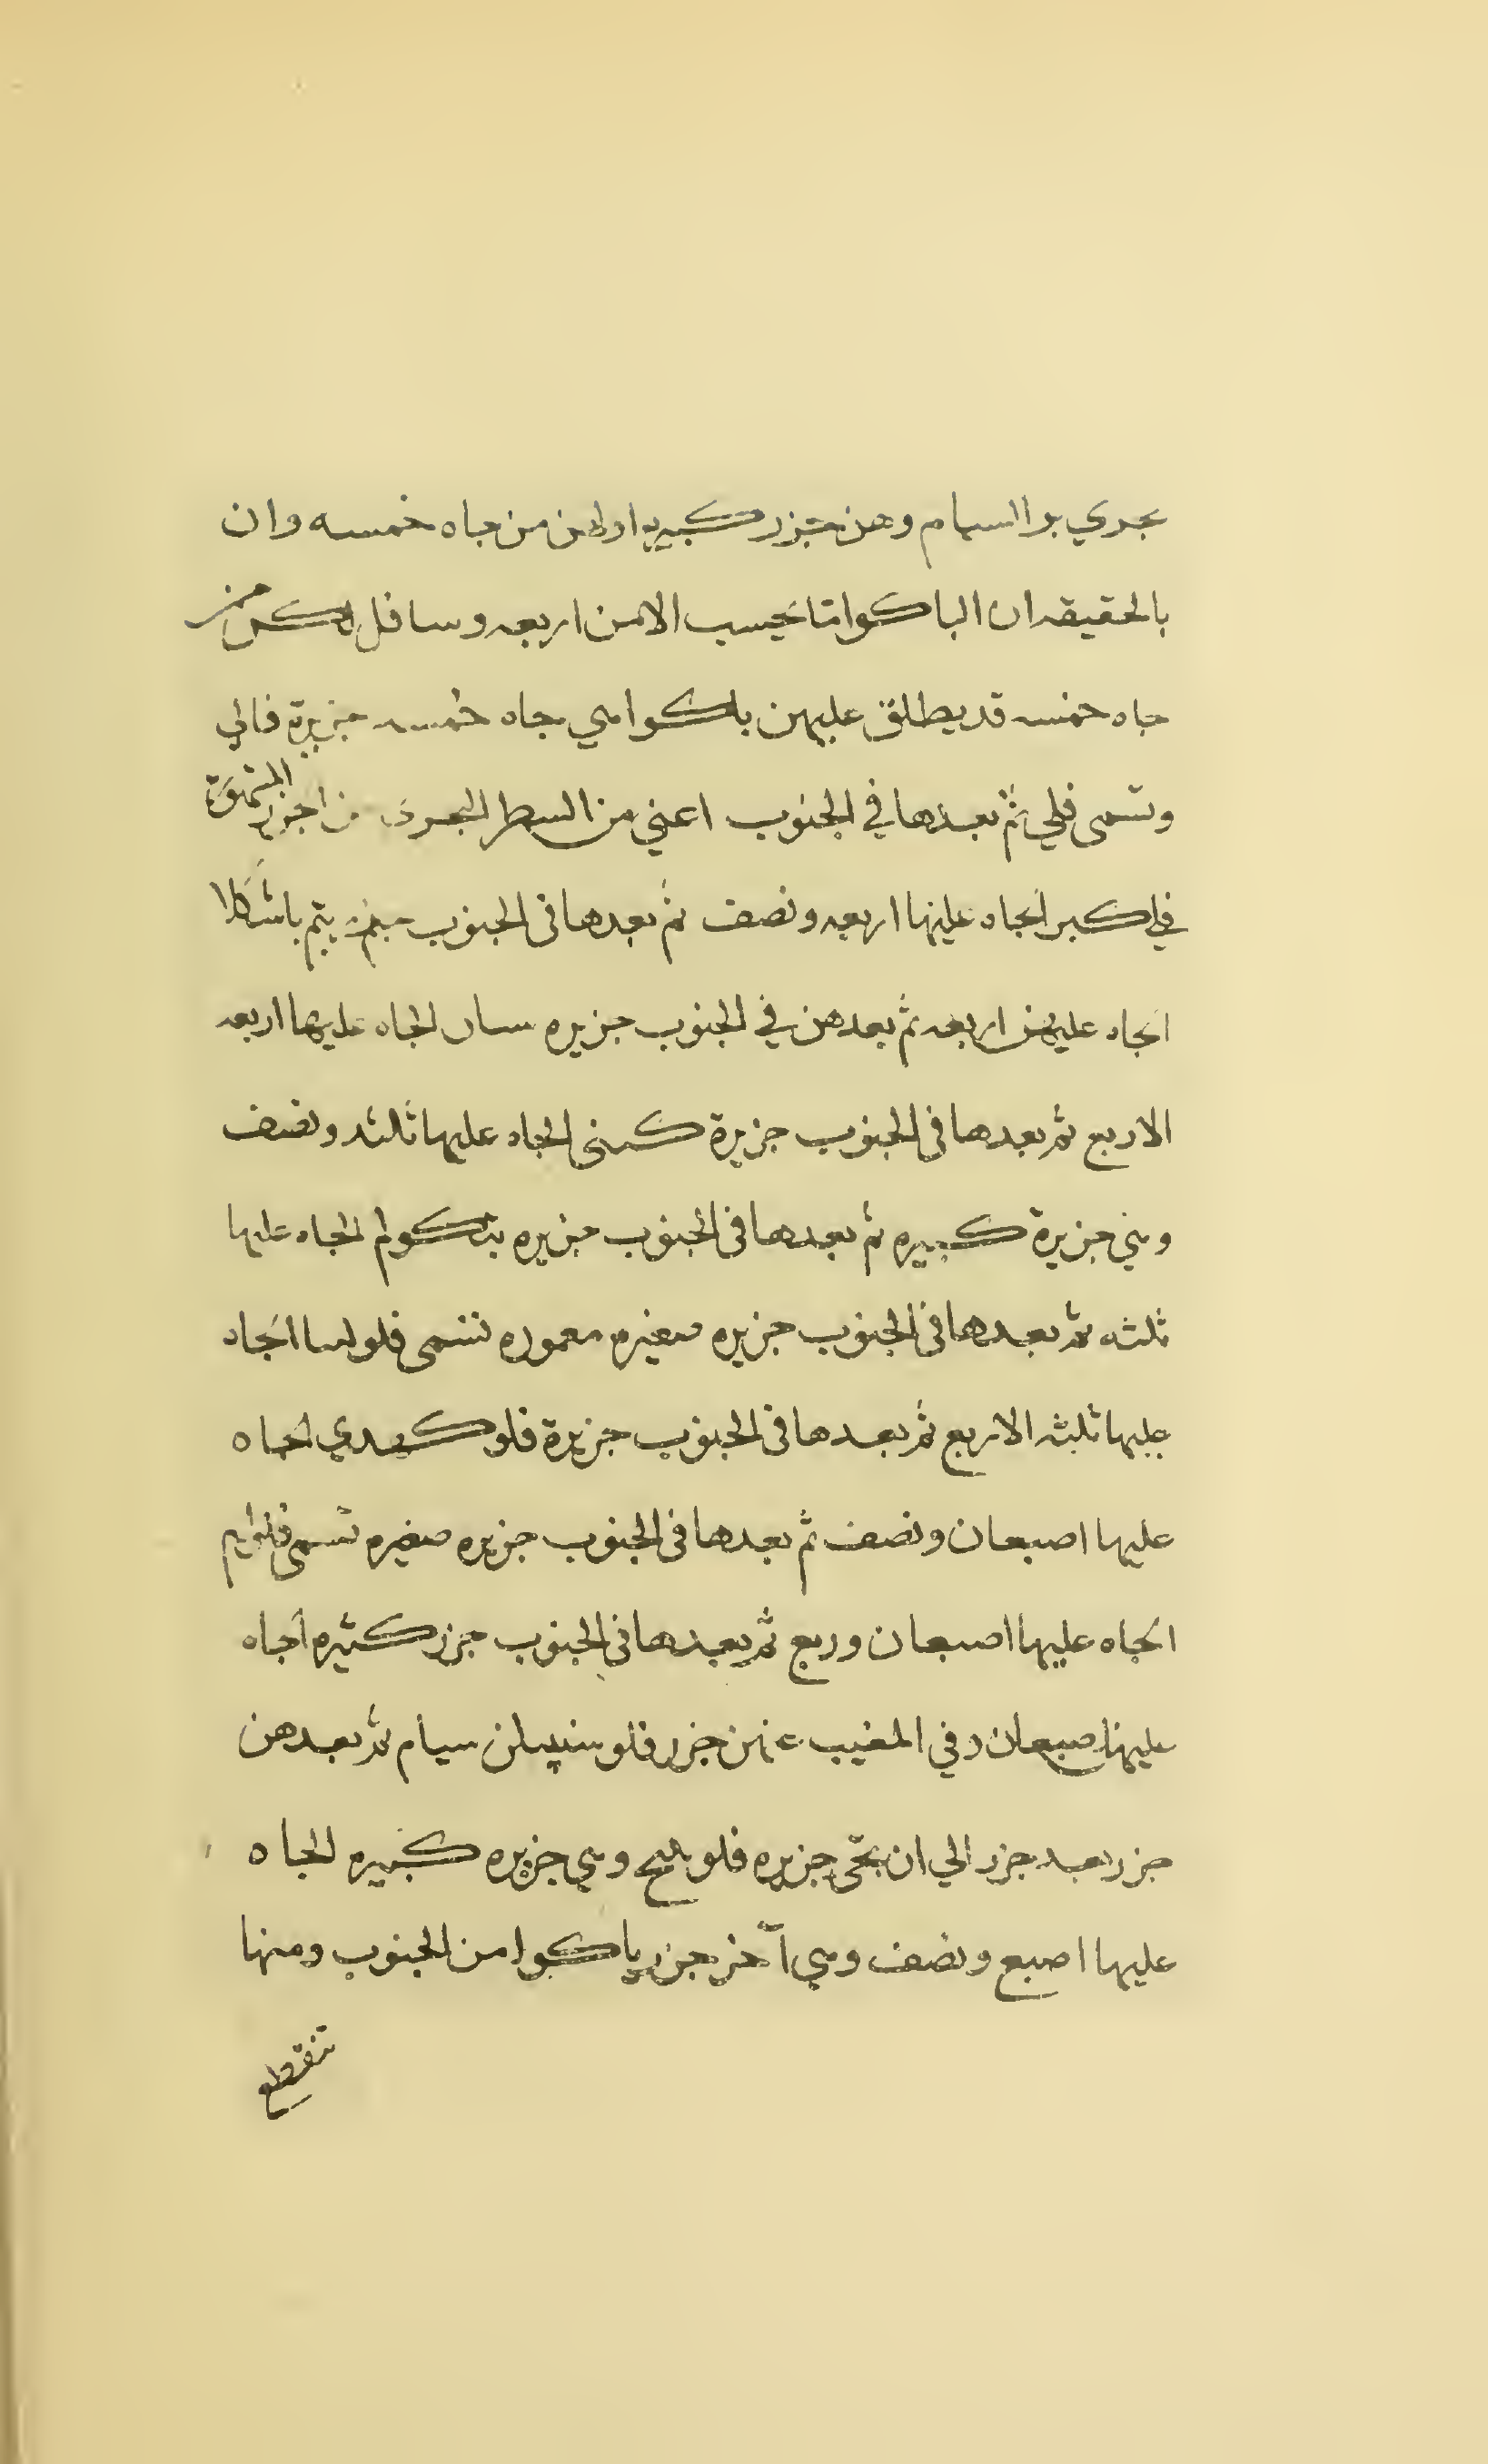 بحري بر السيام وهن جزر كبيره اولهن من جاه خمسه وان
بالحقيقه ان الباكوا ما تحسب الا من اربعه وسافل لكن من
جاه خمسه قد يطلق عليهن باكوا هي جاه خمسه جزيرة فالي
وتسمى فلي ثم بعدها في الجنوب اعني من السطر البحري من اجزر المشهوة
في كبر الجاه عليها اربعه ونصف ثم بعدها في الجنوب
الجاه عليهن اربعه ثم بعدهن في الجنوب جزيره الجاه عليها اربعه
الا ربع ثم بعدها في الجنوب جزيرة الجاه عليها ثلثه ونصف
وهي جزيرة كبيره ثم بعدها في الجنوب جزيره الجاه عليها
ثلثه ثم بعدها في الجنوب جزيره صغيره معموره تسمى الجاه
عليها ثلثه الا ربع ثم بعدها في الجنوب جزيرة فلو الجاه
عليها اصبعان ونصف ثم بعدها في الجنوب جزيره صغيره تسمى
الجاه عليها اصبعان وربع ثم بعدها في الجنوب جزر كثيره الجاه
عليها اصبعان وفي المغيب عنهن جزر فلو سنبيلن سيام ثم بعدهن
جزر بعد جزر الي ان تجي جزيره فلو وهي جزيره كبيره الجاه
عليها اصبع ونصف وهي آخر جزر باكوا من الجنوب ومنها
تنقطع